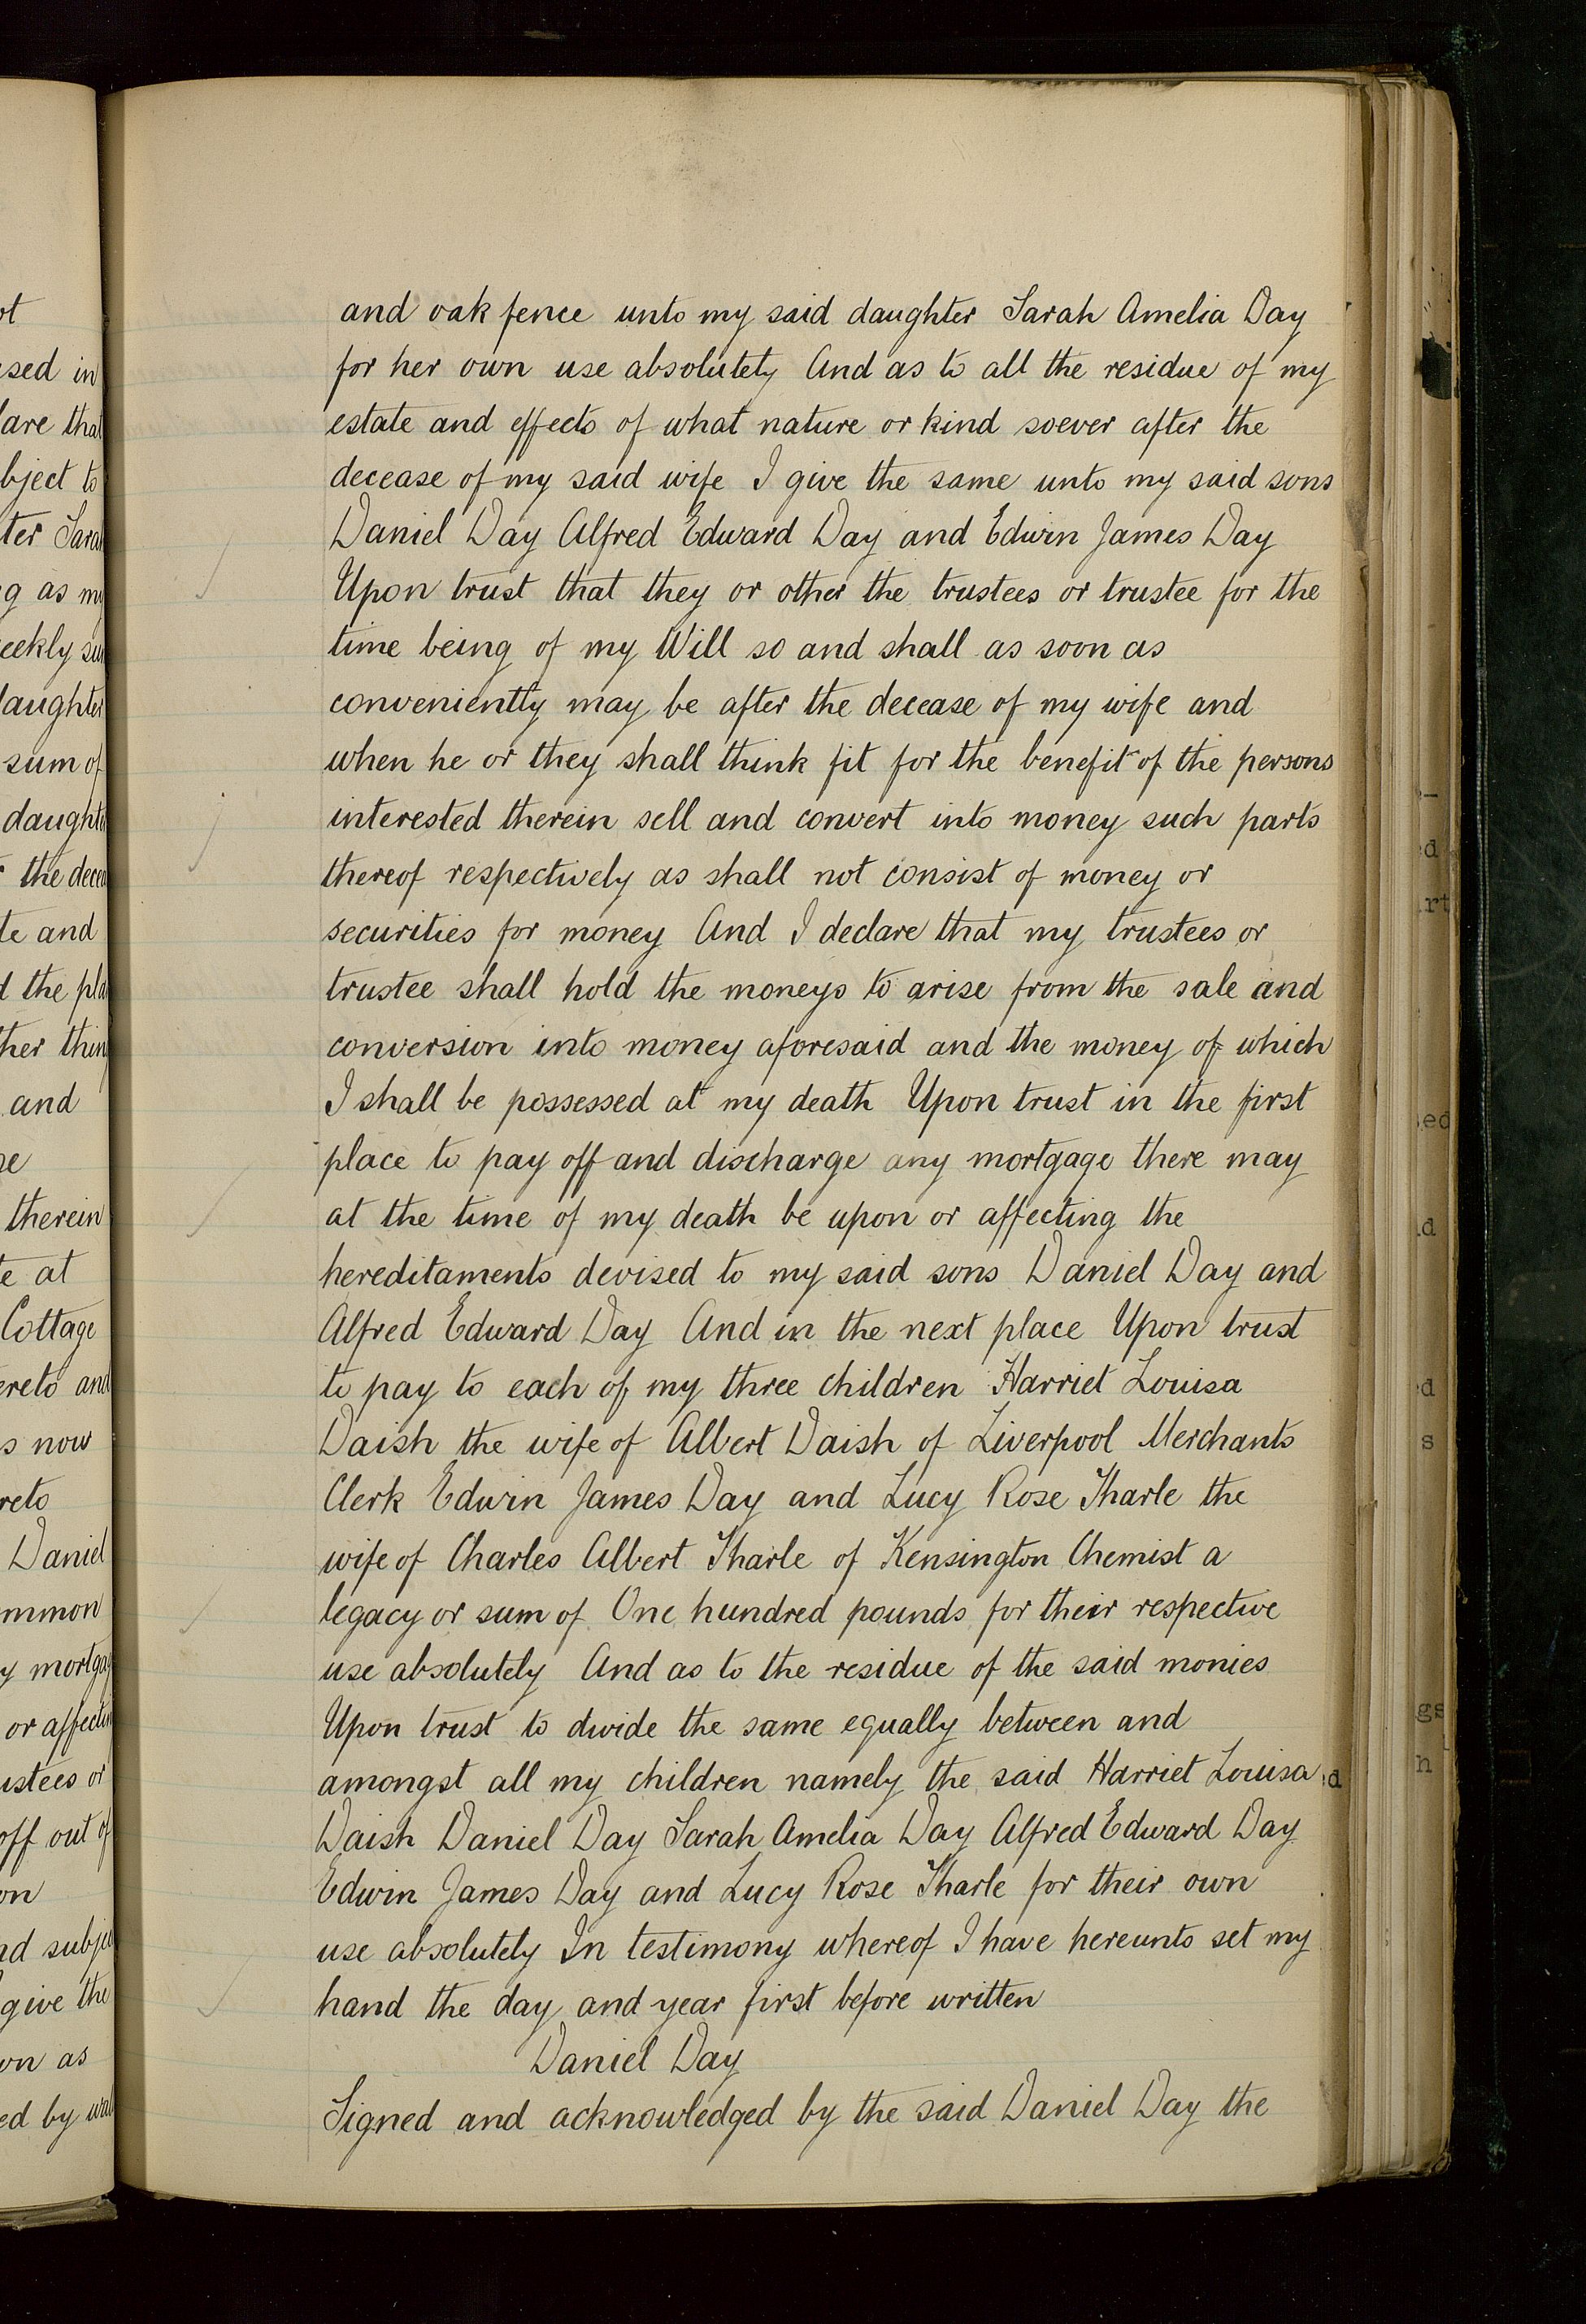 and oak fence unto my said daughter Sarah Amelia Day
for her own use absolutely And as to all the residue of my
estate and effects of what nature or kind soever after the
decease of my said wife I give the same unto my said sons
Daniel Day Alfred Edward Day and Edwin James Day
Upon trust that they or other the trustees or trustee for the
time being of my Will so and shall as soon as
conveniently may be after the decease of my wife and
when he or they shall think fit for the benefit of the persons
interested therein sell and convert into money such parts
thereof respectively as shall not consist of money or
securities for money And I declare that my trustees or
trustee shall hold the moneys to arise from the sale and
conversion into money aforesaid and the money of which
I shall be possessed at my death Upon trust in the first
place to pay off and discharge any mortgage there may
at the time of my death be upon or affecting the
hereditaments devised to my said sons Daniel Day and
Alfred Edward Day And in the next place Upon trust
to pay to each of my three children Harriet Louisa
Daish the wife of Albert Daish of Liverpool Merchants
Clerk Edwin James Day and Lucy Rose Tharle the
wife of Charles Albert Tharle of Kensington Chemist a
legacy or sum of One hundred pounds for their respective
use absolutely And as to the residue of the said monies
Upon trust to divide the same equally between and
amongst all my children namely the said Harriet Louisa
Daish Daniel Day Sarah Amelia Day Alfred Edward Day
Edwin James Day and Lucy Rose Tharle for their own
use absolutely In testimony whereof I have hereunto set my
hand the day and year first before written
Daniel Day
Signed and acknowledged by the said Daniel Day the